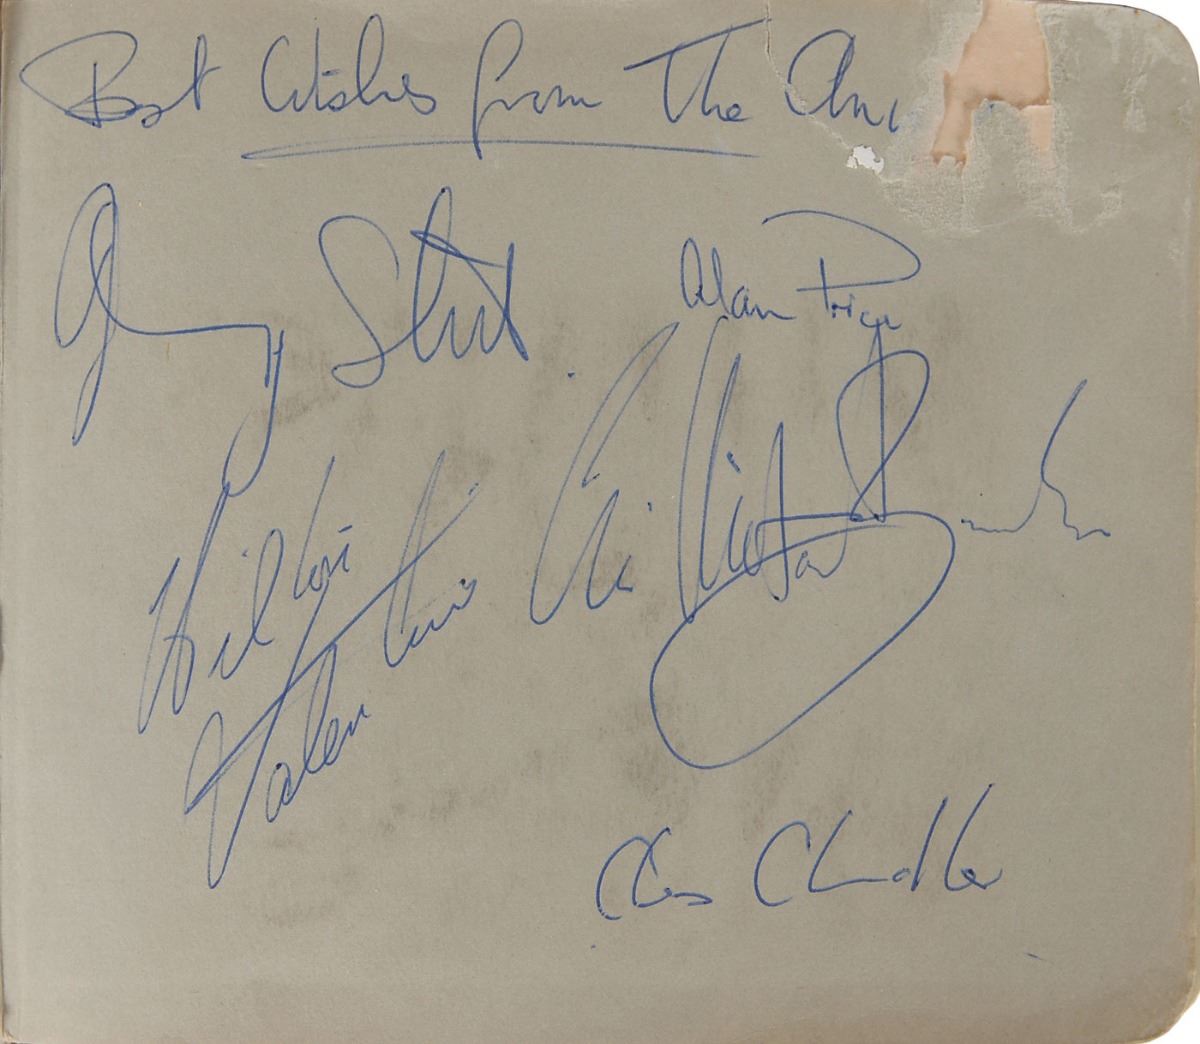 Best Wishes from The Ani
Johnny Steel
Alan Price
Eric Victor Burdon
Hilton
Valentine
Chas Chandler